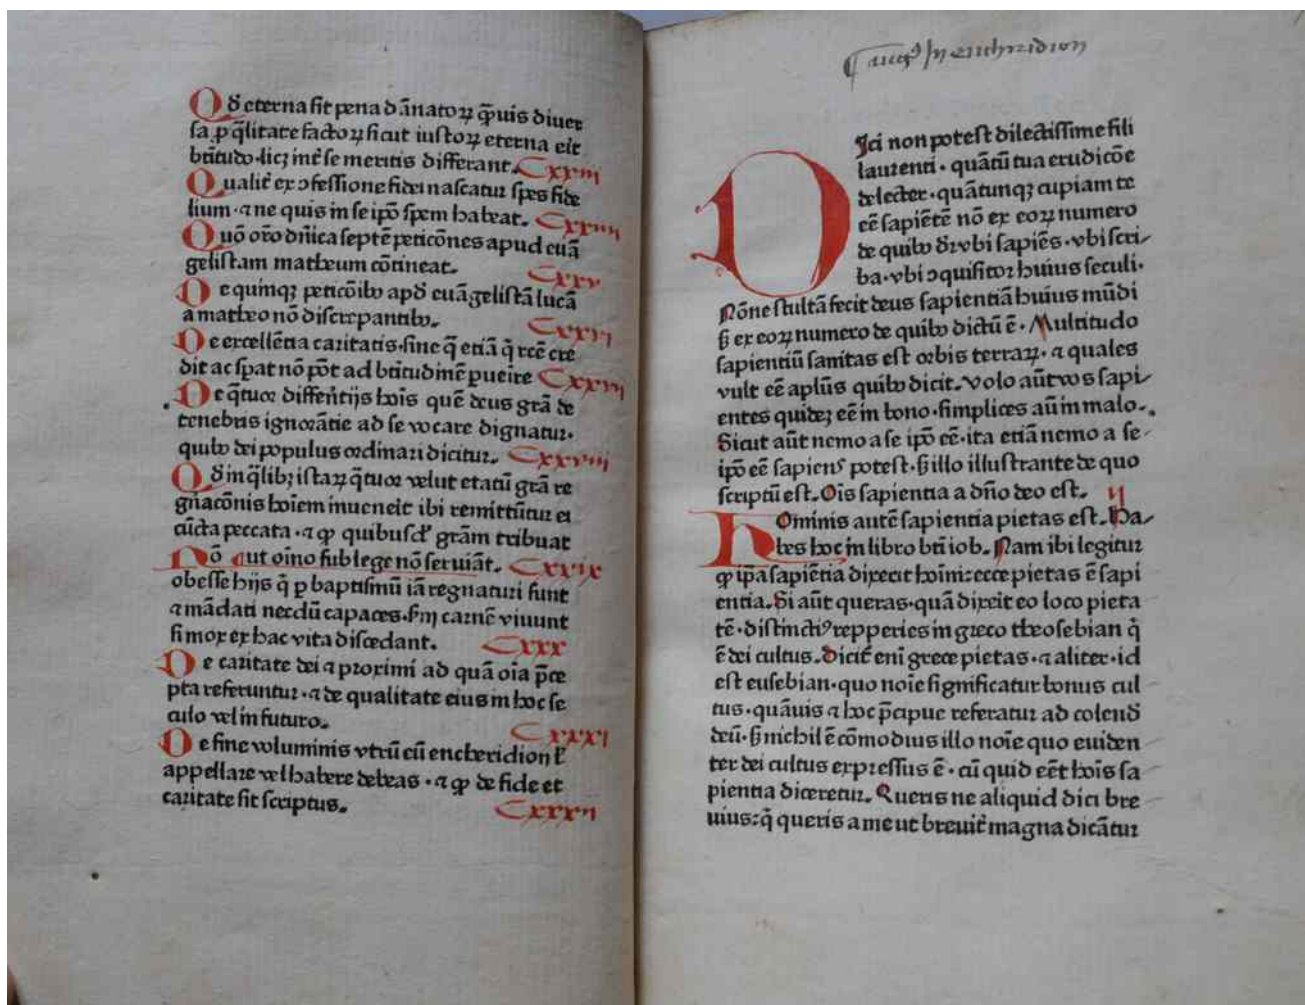 Qđ eterna sit pena dānatoꝝ q̄uis diuer
sa ꝓ q̄litate factoꝝ sicut iustoꝝ eterna eit
btitudo·licꝫ int̄ se meritis differant. Cxxiii
Qualit̄ ex ɔfessione fidei nascatur spes fide
lium·⁊ ne quis in se ipō spem habeat. Cxxiiii
Quō or̄o dn̄ica septē peticōnes apud euā
gelistam matheum cōtineat. Cxxv
De quinqꝫ peticōibꝰ apđ euāgelistā lucā
a matheo nō discrepantibꝰ. Cxxvi
De excellētia caritatis·sine q̄ etiā q̄ rcē cre
dit ac spat nō pōt ad btitudinē ꝑueire Cxxvii
De q̄tuor differn̄tijs hoīs quē deus grā de
tenebris ignorātie ad se vocare dignatur·
quibꝰ dei populus ordinari dicitur. Cxxviii
Qđ in q̄libꝫ istaꝝ q̄tuor velut etatū grā re
gn̄acōnis hoīem inueneit ibi remittūtur ei
cūcta peccata·⁊ ꝙ quibusđ grām tribuat
Nō ut oīno sub lege nō seruiāt. Cxxix
obesse hijs q̄ ꝑ baptismū iā regnaturi sunt
⁊ mādati necdū capaces·scđm carnē viuunt
si mox ex hac vita discedant. Cxxx
De caritate dei ⁊ proximi ad quā oīa p̄ce
pta referuntur·⁊ de qualitate eius in hoc se
culo vel in futuro. Cxxxi
De fine voluminis vtrū cū encheridion
appellare vel habere debeas·⁊ ꝙ de fide et
caritate sit scriptus. Cxxxii
¶ augꝰ In enchiridion
DJci non potest dilectissime fili
laurenti·quātū tua erudicōe
delecter·quātunqꝫ cupiam te
eē sapiētē nō ex eoꝝ numero
de quibꝰ dr̄ vbi sapiēs·vbi scri/
ba·vbi ɔquisitor huius seculi·
Nōne stultā fecit deus sapientiā huius mūdi
sꝫ ex eoꝝ numero de quibꝰ dictū ē·Multitudo
sapientiū sanitas est orbis terraꝝ·⁊ quales
vult eē apl̄us quibꝰ dicit·volo aūt vos sapi/
entes quideꝫ eē in bono·simplices aūt in malo·
Sicut aūt nemo a se ipō eē·ita etiā nemo a se
ipō eē sapiens potest·sꝫ illo illustrante de quo
scriptū est. Ois sapientia a dn̄o deo est. ij
Hominis autē sapientia pietas est. Ha/
bes hoc in libro bt̄i iob. Nam ibi legitur
ꝙ ip̄a sapiētia dixerit hoīni:ecce pietas ē sapi
entia. Si aūt queras·quā dixerit eo loco pieta
tē·distinctiꝰ repperies in greco theosebian q̄
ē dei cultus. Dicit̄ enī grece pietas·⁊ aliter·id
est eusebian·quo noīe significatur bonus cul
tus·quāuis ⁊ hoc p̄cipue referatur ad colenđ
deū·sꝫ nichil ē cōmodius illo noīe quo euiden
ter dei cultus expressus ē·cū quid eēt hoīs sa
pientia diceretur. Queris ne aliquid dici bre
uius:q̄ queris a me ut breuit̄ magna dicātur